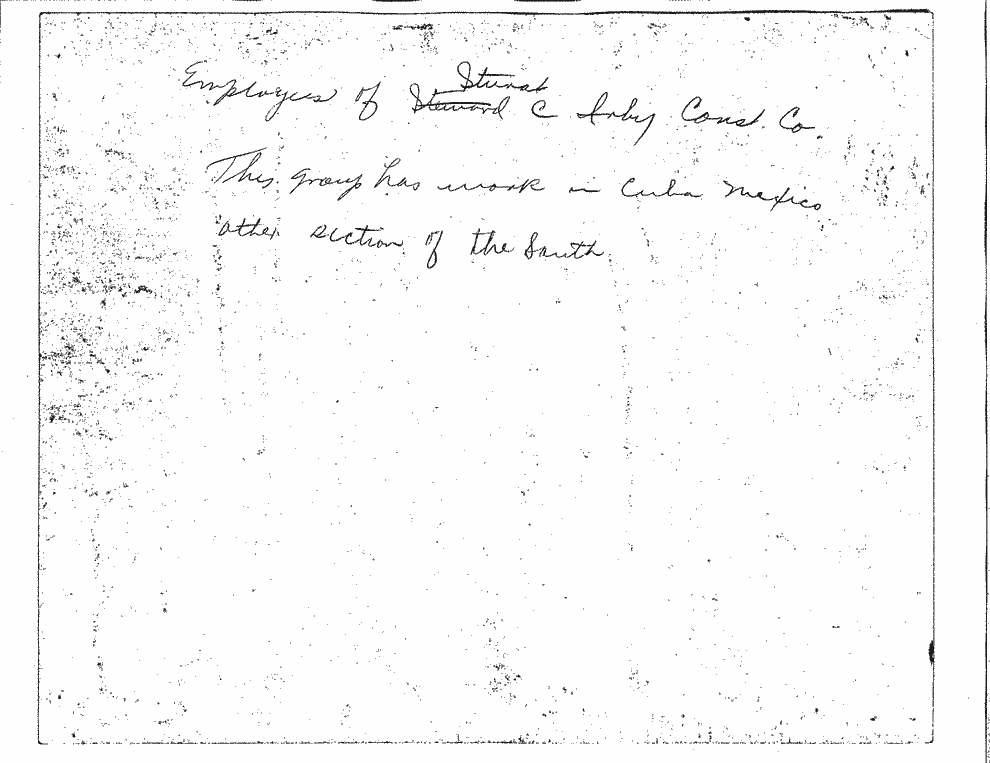 Employees of Stuart
~~Steward~~ C Irby Const. Co.
This group has work in Cuba Mexico
other section of the South